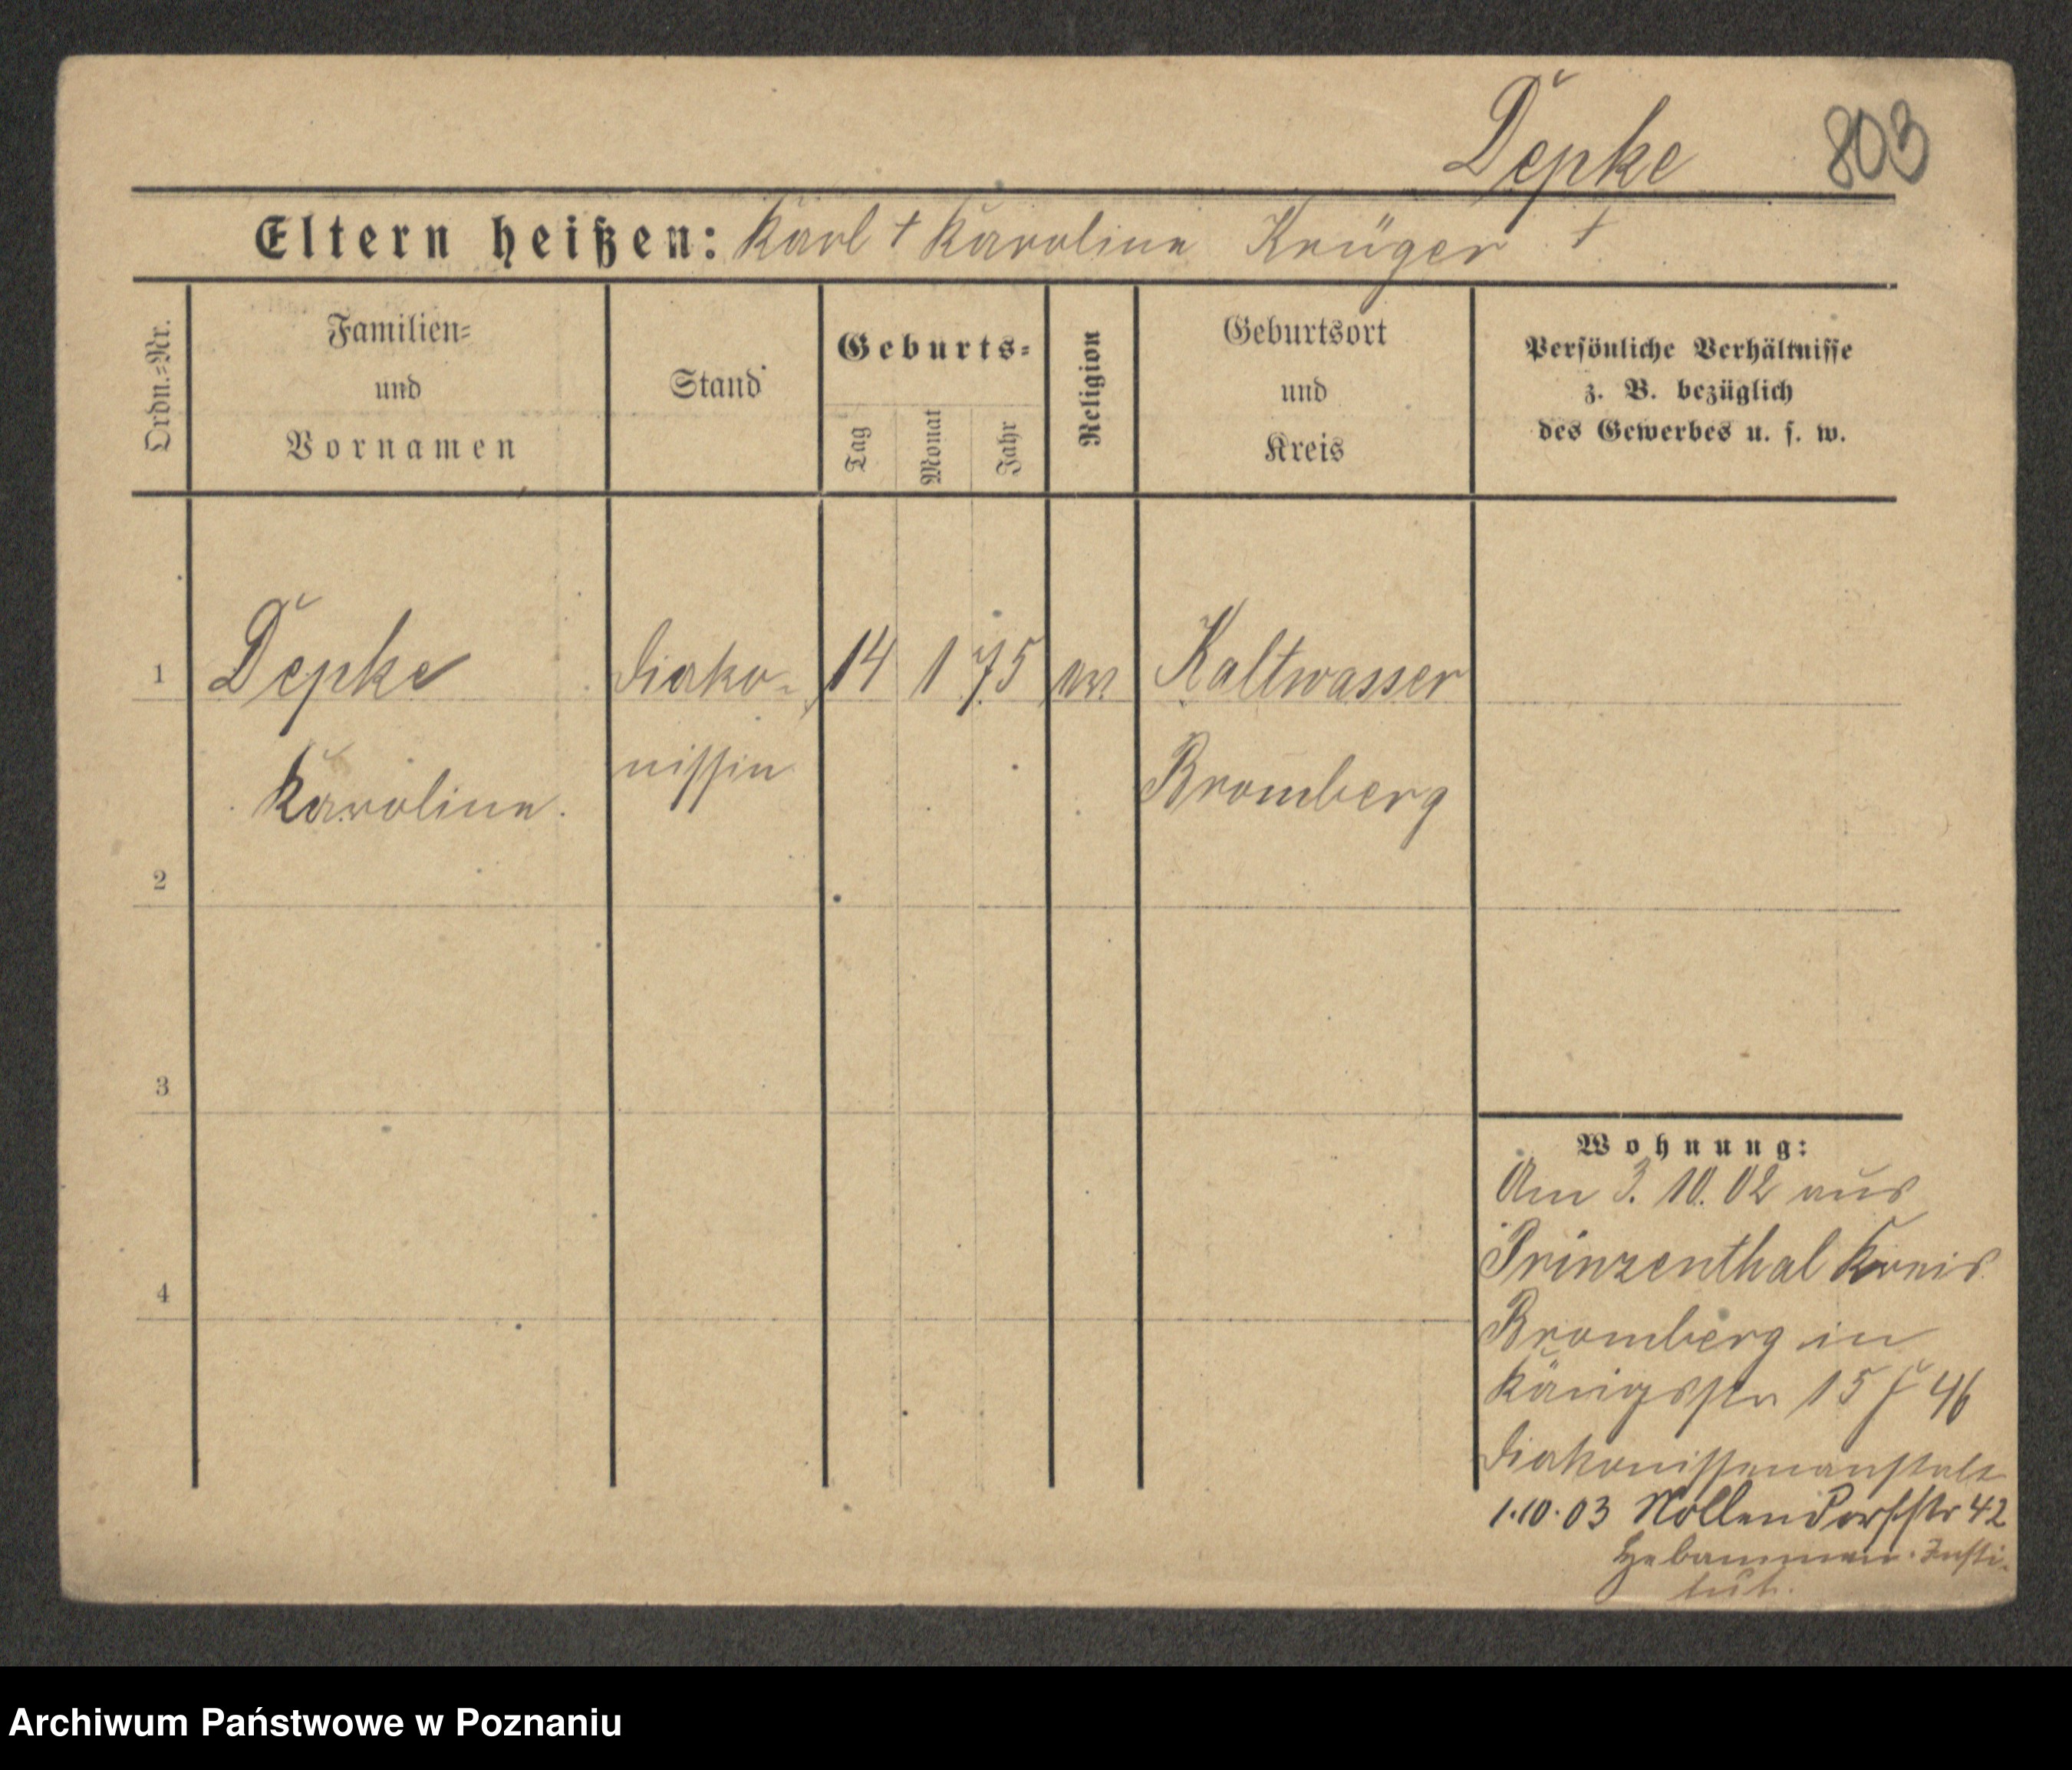 Depke 803
Eltern heißen: Karl + Karoline Krüger +
Ordn.=Nr.
Familien=
und
Vornamen
Stand
Geburts=
Tag
Monat
Jahr
Religion
Geburtsort
und
Kreis
Persönliche Verhältnisse
z. B. bezüglich
des Gewerbes u. s. w.
1 Depke Diako= 14 1 75 ev. Kaltwasser
Karoline. nissin Bromberg
2
3
4
Wohnung:
Am 3. 10. 02 aus
Prinzenthal Kreis
Bromberg in
Königsstr 15
Diakonissenanstalt
1.10.03 Nollendorfstr 42
Hebammen-Insti=
tut.